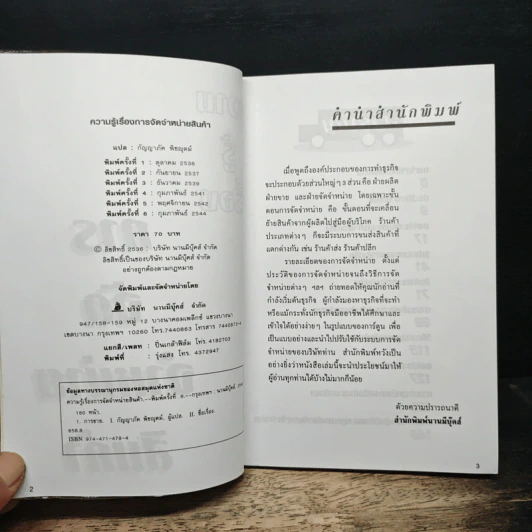 ความรู้เรื่องการจัดจำหน่ายสินค้า
แปล : กัญญาภัค พิชญุตม์
พิมพ์ครั้งที่ 1 : ตุลาคม 2536
พิมพ์ครั้งที่ 2 : กันยายน 2537
พิมพ์ครั้งที่ 3 : ธันวาคม 2539
พิมพ์ครั้งที่ 4 : กุมภาพันธ์ 2541
พิมพ์ครั้งที่ 5 : พฤศจิกายน 2542
พิมพ์ครั้งที่ 6 : กุมภาพันธ์ 2544
ราคา 70 บาท
© ลิขสิทธิ์ 2536 : บริษัท นานมีบุ๊คส์ จำกัด
ลิขสิทธิ์เป็นของบริษัท นานมีบุ๊คส์ จำกัด
อย่างถูกต้องตามกฎหมาย
จัดพิมพ์และจัดจำหน่ายโดย
บริษัท นานมีบุ๊คส์ จำกัด
947/158-159 หมู่ 12 บางนาคอมเพล็กซ์ แขวงบางนา
เขตบางนา กรุงเทพฯ 10260 โทร.7440863 โทรสาร
แยกสี/เพลท : ปิ่นเกล้าฟิล์ม โทร. 4182703
พิมพ์ที่ : รุ่งแสง โทร. 4372947
ข้อมูลทางบรรณานุกรมของหอสมุดแห่งชาติ
ความรู้เรื่องการจัดจำหน่ายสินค้า.--พิมพ์ครั้งที่ 6.--กรุงเทพฯ : นานมีบุ๊คส์,
160 หน้า.
1. การขาย. I. กัญญาภัค พิชญุตม์, ผู้แปล. II. ชื่อเรื่อง.
658.8
ISBN 974-471-479-6
2
คำนำสำนักพิมพ์
เมื่อพูดถึงองค์ประกอบของการทำธุรกิจ
จะประกอบด้วยส่วนใหญ่ๆ 3 ส่วน คือ ฝ่ายผลิต
ฝ่ายขาย และฝ่ายจัดจำหน่าย โดยเฉพาะขั้น
ตอนการจัดจำหน่าย คือ ขั้นตอนที่จะเคลื่อน
ย้ายสินค้าจากผู้ผลิตไปสู่มือผู้บริโภค ร้านค้า
ประเภทต่าง ๆ ก็จะมีระบบการขนส่งสินค้าที่
แตกต่างกัน เช่น ร้านค้าส่ง ร้านค้าปลีก
รายละเอียดของการจัดจำหน่าย ตั้งแต่
ประวัติของการจัดจำหน่ายจนถึงวิธีการจัด
จำหน่ายต่าง ๆ ฯลฯ ถ่ายทอดให้คุณนักอ่านที่
กำลังเริ่มต้นธุรกิจ ผู้กำลังมองหาธุรกิจที่จะทำ
หรือแม้กระทั่งนักธุรกิจมืออาชีพได้ศึกษาและ
เข้าใจได้อย่างง่ายๆ ในรูปแบบของการ์ตูน เพื่อ
เป็นแบบอย่างและนำไปปรับใช้กับระบบการจัด
จำหน่ายของบริษัทท่าน สำนักพิมพ์หวังเป็น
อย่างยิ่งว่าหนังสือเล่มนี้จะนำประโยชน์มาให้
ผู้อ่านทุกท่านได้บ้างไม่มากก็น้อย
ด้วยความปรารถนาดี
สำนักพิมพ์นานมีบุ๊คส์
3